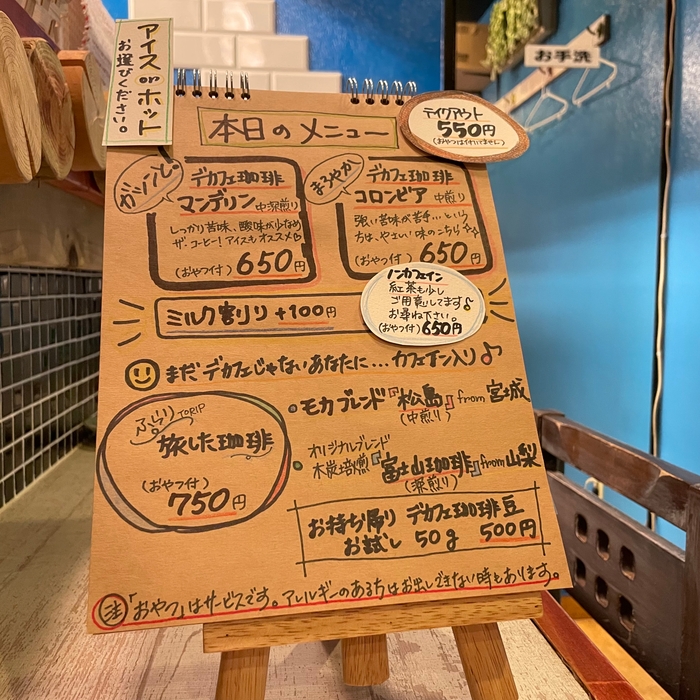 アイス or ホット
お選びください。
お手洗
本日のメニュー
テイクアウト
550円
(おやつは付いてません)
ガツンと。
デカフェ珈琲
マンデリン 中深煎り
しっかり苦味、酸味が少なめ
ザ・コーヒー!アイスもオススメ
(おやつ付) 650円
まろやか
デカフェ珈琲
コロンビア 中煎り
強い苦味が苦手…という
方は、やさしい味のこちら
(おやつ付) 650円
ミルク割り +100円
ノンカフェイン
紅茶も少し
ご用意してます♪
お尋ね下さい。
(おやつ付) 650円
まだデカフェじゃないあなたに…カフェイン入り♪
ふらり TORIP
旅した珈琲
(おやつ付)
750円
・モカブレンド『松島』from 宮城
(中煎り)
オリジナルブレンド
・木炭焙煎『富士山珈琲』from 山梨
(深煎り)
お持ち帰り デカフェ珈琲豆
お試し 50g 500円
注 「おやつ」はサービスです。アレルギーのある方はお出しできない時もあります。